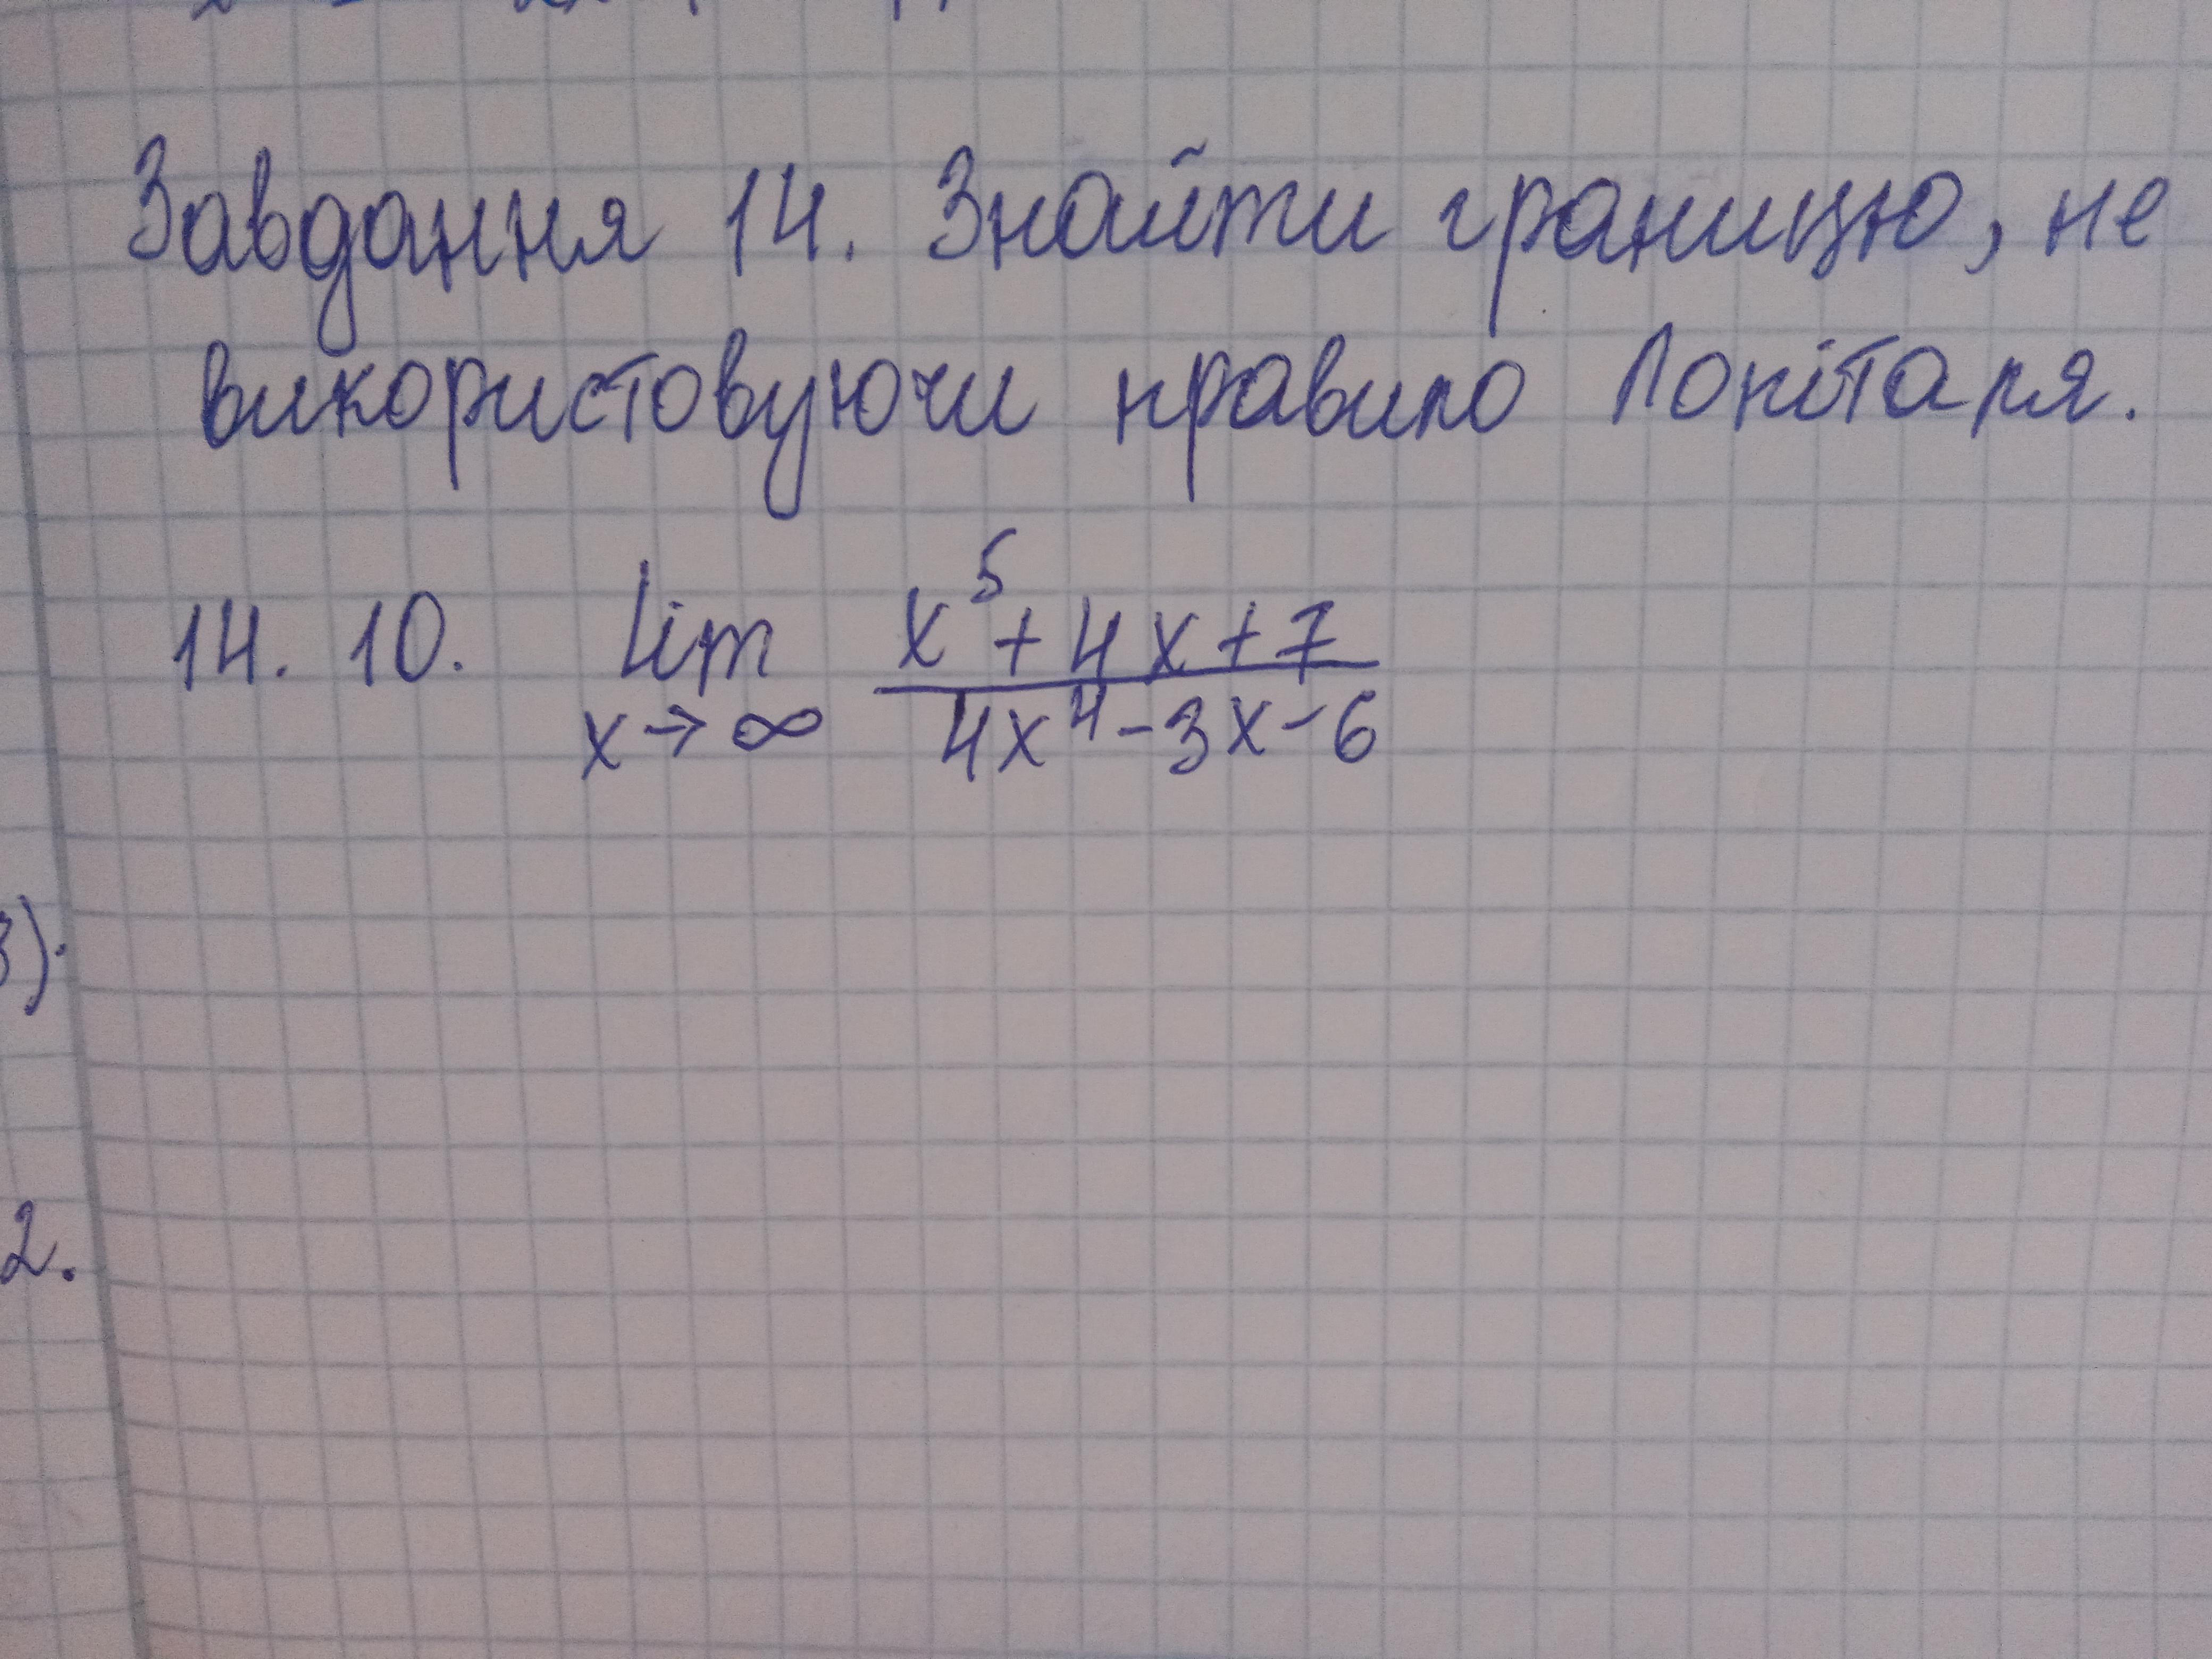 Завдання 14. Знайти границю, не
використовуючи правило Лопіталя.
14. 10. lim x→∞ (x⁵ + 4x + 7)/(4x⁴ - 3x - 6)
3).
2.